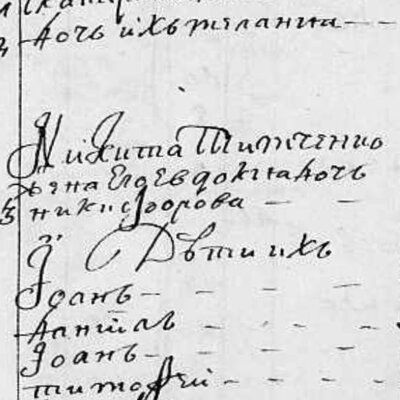 дочь ихъ меланиа
Никита Тимченко
жена Его Евдокиа дочь
никифорова
Дѣти ихъ
Іоанъ
данилъ
Іоанъ
тимоѳей